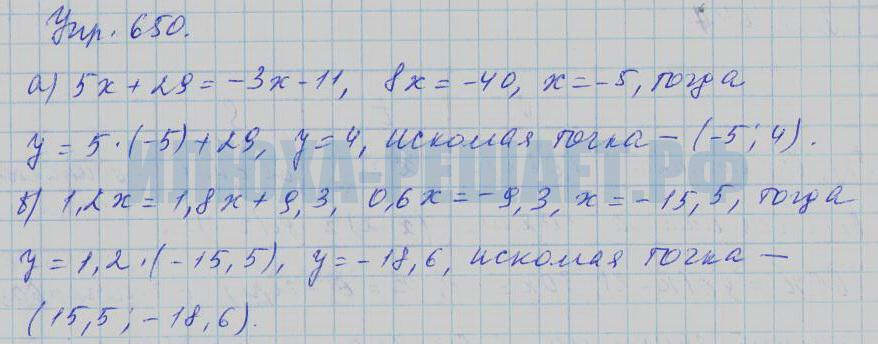 Упр. 650.
а) 5х + 29 = -3х - 11, 8х = -40, х = -5, тогда
у = 5 · (-5) + 29, у = 4, искомая точка - (-5; 4).
ИЛЮХА-РЕШАЕТ.РФ
б) 1,2х = 1,8х + 9,3, 0,6х = -9,3, х = -15,5, тогда
у = 1,2 · (-15,5), у = -18,6, искомая точка —
(15,5; -18,6).